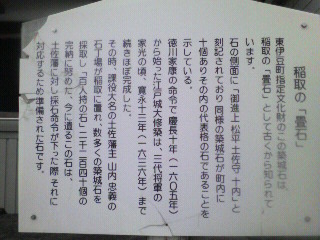 稲取の「畳石」
東伊豆町指定文化財のこの築城石は、
稲取の「畳石」として古くから知られて
います。
石の側面に「御進上 松平土佐守十内」と
刻記されており同様の築城石が町内に
十個ありその内の代表格の石であることを
示している。
徳川家康の命令で慶長十年(一六〇五年)
から始った江戸城大修築は、三代将軍の
家光の頃、寛永十三年(一六三六年)まで
続きほぼ完成した。
その時、課役大名の土佐藩主山内忠義の
石丁場が稲取に置れ、数多くの築城石を
採取し「百人持の石」二千二百四十個の
完納に努めた。今に遺るこの石は、
土佐藩に対し採石命令が下った際それに
対応するため準備された石です。